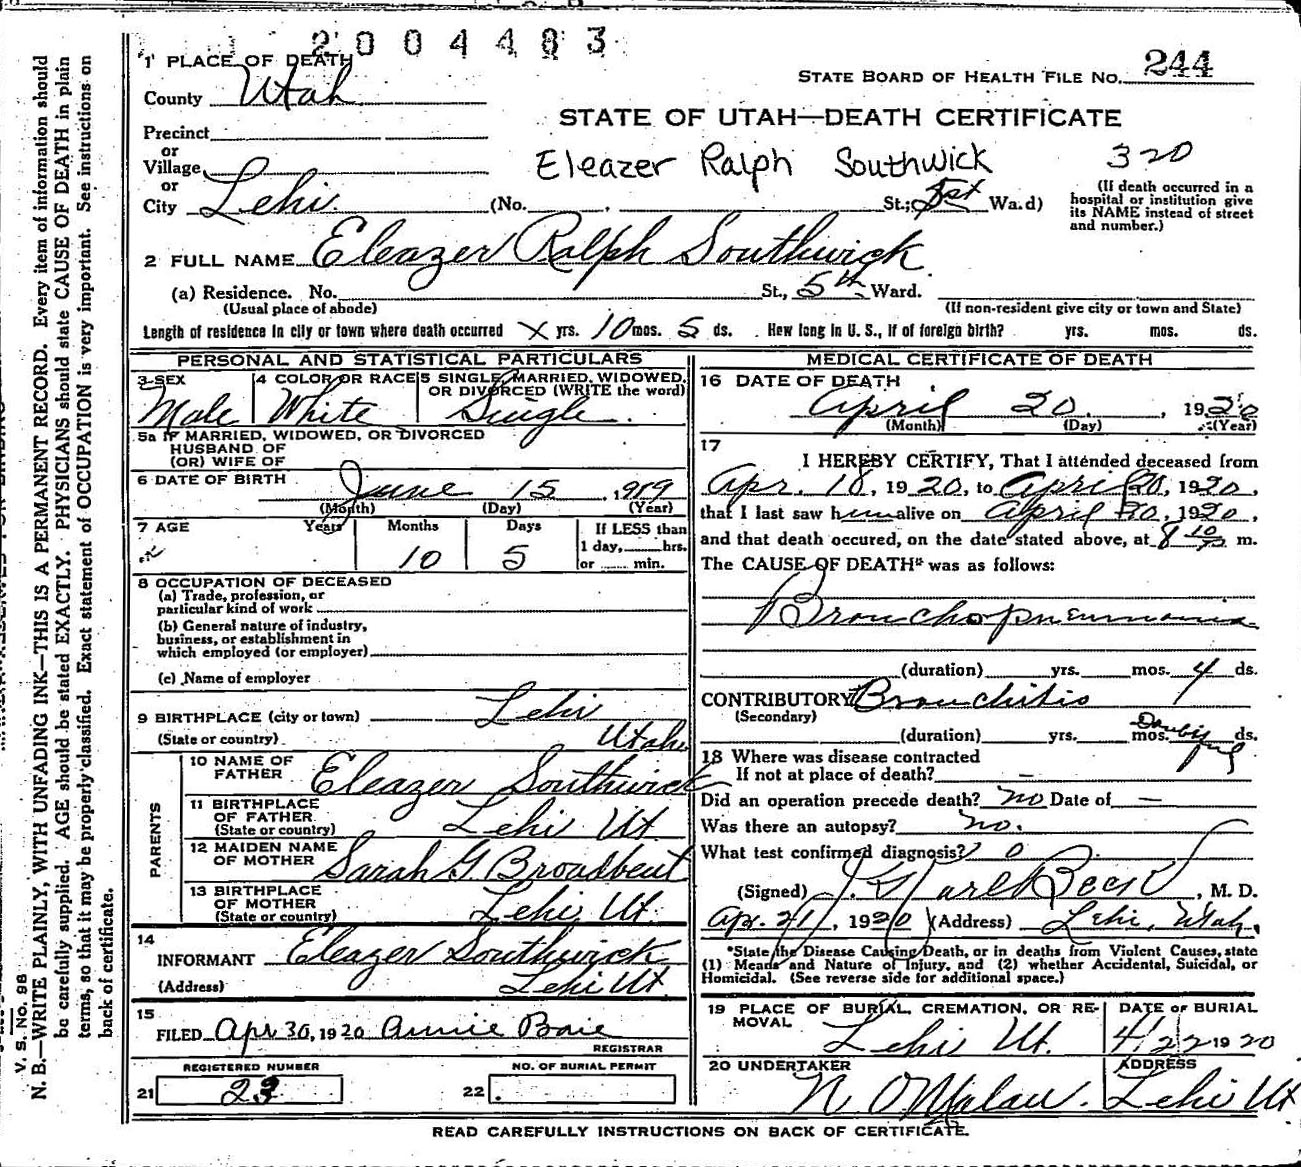 2004483
1 PLACE OF DEATH
STATE BOARD OF HEALTH FILE NO. 244
County Utah
STATE OF UTAH—DEATH CERTIFICATE
Precinct
or
Village
or
Eleazer Ralph Southwick 320
City Lehi (No. St.; Ward)
(If death occurred in a hospital or institution give its NAME instead of street and number.)
2 FULL NAME Eleazer Ralph Southwick
(a) Residence. No. St., 5th Ward.
(Usual place of abode) (If non-resident give city or town and State)
Length of residence in city or town where death occurred X yrs. 10 mos. 5 ds. How long in U. S., if of foreign birth? yrs. mos. ds.
PERSONAL AND STATISTICAL PARTICULARS
3 SEX Male
4 COLOR OR RACE White
5 SINGLE, MARRIED, WIDOWED, OR DIVORCED (WRITE the word) Single.
5a IF MARRIED, WIDOWED, OR DIVORCED
HUSBAND OF
(OR) WIFE OF
6 DATE OF BIRTH June 15, 1919
(Month) (Day) (Year)
7 AGE Years Months Days If LESS than
10 5 1 day, hrs.
or min.
8 OCCUPATION OF DECEASED
(a) Trade, profession, or
particular kind of work
(b) General nature of industry,
business, or establishment in
which employed (or employer)
(c) Name of employer
9 BIRTHPLACE (city or town) Lehi
(State or country) Utah
PARENTS
10 NAME OF FATHER Eleazer Southwick
11 BIRTHPLACE OF FATHER (State or country) Lehi Ut
12 MAIDEN NAME OF MOTHER Sarah G. Broadbent
13 BIRTHPLACE OF MOTHER (State or country) Lehi, Ut
14
INFORMANT Eleazer Southwick
(Address) Lehi Ut.
15
FILED Apr 30, 1920 Annie
REGISTRAR
REGISTERED NUMBER NO. OF BURIAL PERMIT
21 23 22
MEDICAL CERTIFICATE OF DEATH
16 DATE OF DEATH
April 20, 1920
(Month) (Day) (Year)
17
I HEREBY CERTIFY, That I attended deceased from
Apr. 18, 1920, to April 20, 1920,
that I last saw him alive on April 20, 1920,
and that death occured, on the date stated above, at 8 10 m.
The CAUSE OF DEATH* was as follows:
Bronchopneumonia
(duration) yrs. mos. 4 ds.
CONTRIBUTORY Bronchitis
(Secondary)
(duration) yrs. mos. ds.
18 Where was disease contracted
If not at place of death? —
Did an operation precede death? No Date of —
Was there an autopsy? No.
What test confirmed diagnosis? 0
(Signed) Karl Beck, M. D.
Apr. 21, 1920 (Address) Lehi, Utah.
*State the Disease Causing Death, or in deaths from Violent Causes, state
(1) Means and Nature of Injury, and (2) whether Accidental, Suicidal, or
Homicidal. (See reverse side for additional space.)
19 PLACE OF BURIAL, CREMATION, OR REMOVAL DATE OF BURIAL
Lehi Ut. 4/22 1920
20 UNDERTAKER ADDRESS
N O Malan. Lehi Ut
READ CAREFULLY INSTRUCTIONS ON BACK OF CERTIFICATE.
V. S. No. 98
N. B.—WRITE PLAINLY, WITH UNFADING INK—THIS IS A PERMANENT RECORD. Every item of information should
be carefully supplied. AGE should be stated EXACTLY. PHYSICIANS should state CAUSE OF DEATH in plain
terms, so that it may be properly classified. Exact statement of OCCUPATION is very important. See instructions on
back of certificate.